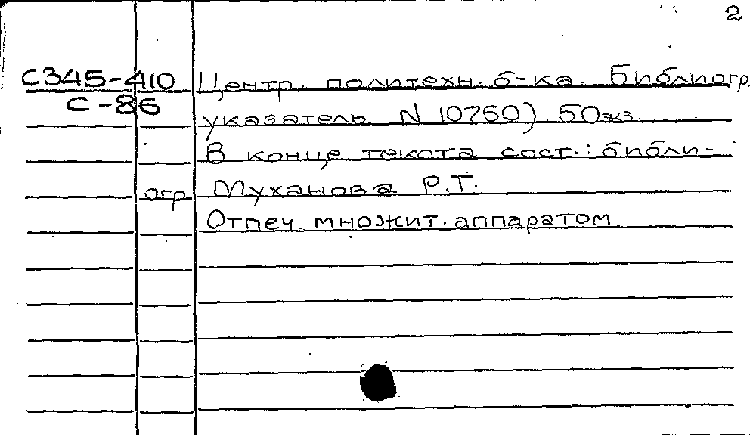 2
С345-410 Центр. политехн. б-ка. Библиогр.
С-86 указатель N 10750) 50экз
В конце текста сост.: библи-
огр Муханова Р.Т.
Отпеч. множит. аппаратом